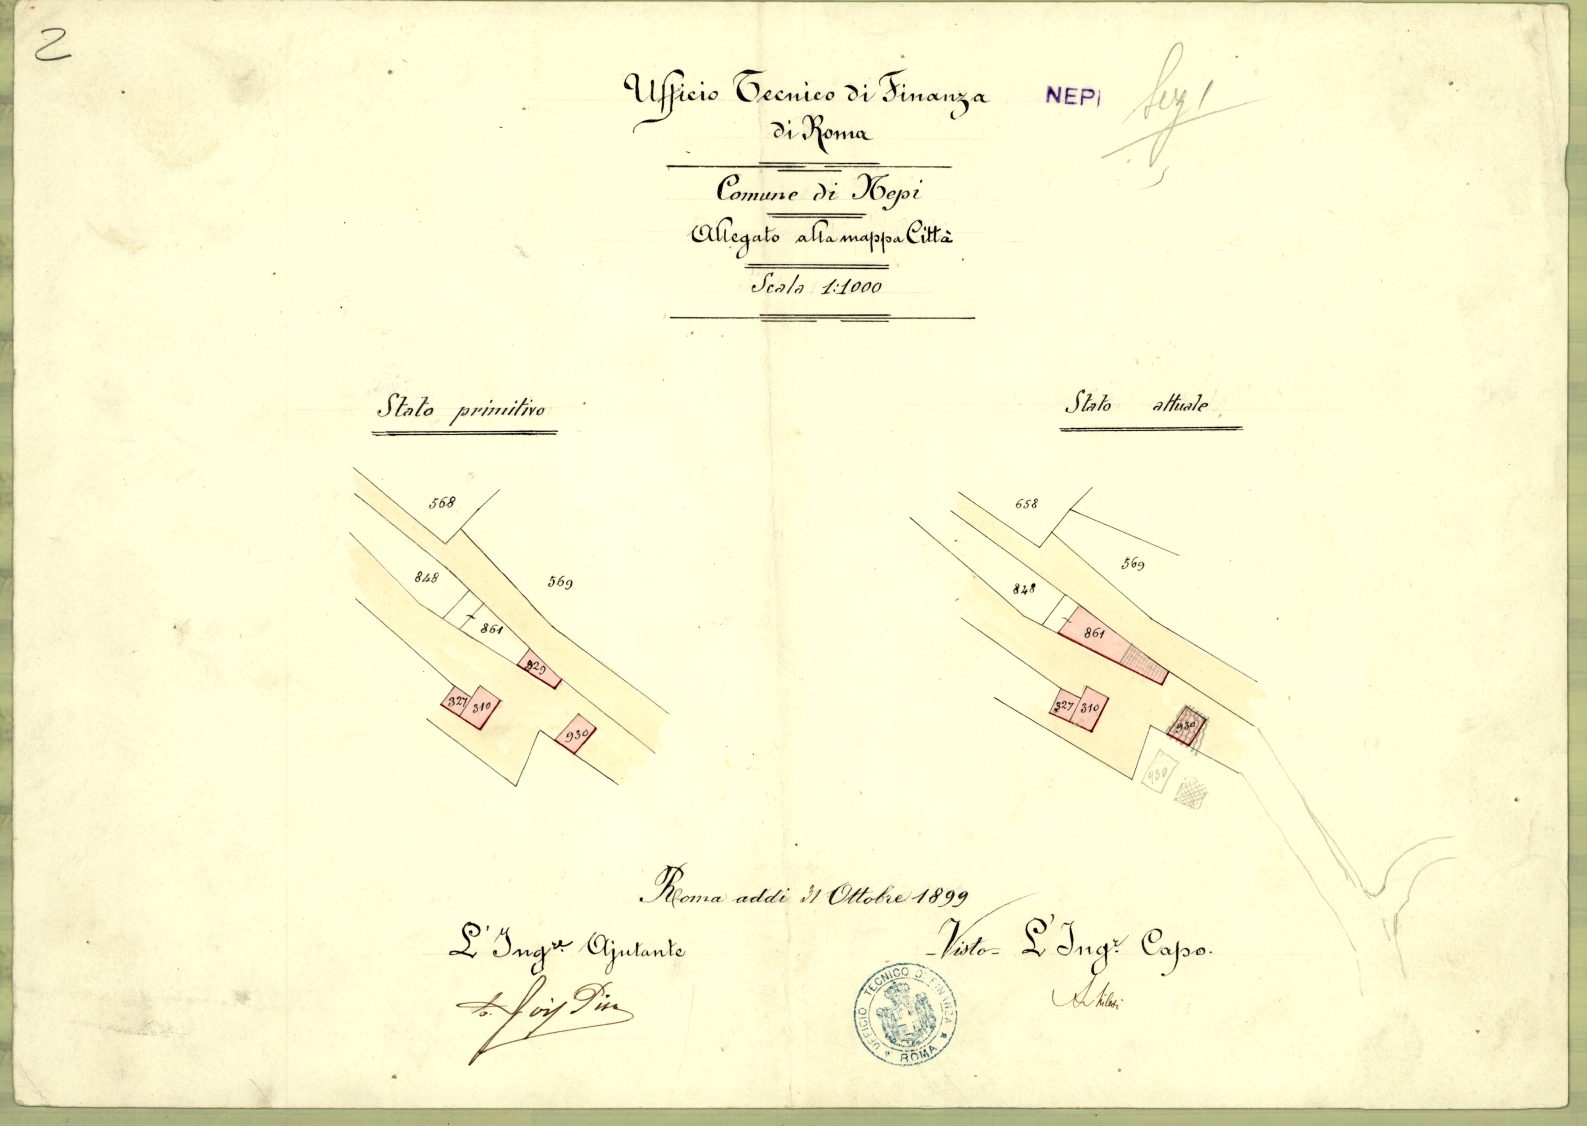 2
Ufficio Tecnico di Finanza
di Roma
NEPI
Comune di Nepi
Allegato alla mappa Città
Scala 1:1000
Stato primitivo
568
848
569
861
929
327
310
930
Stato attuale
658
569
848
861
327
310
930
930
Roma addi 31 Ottobre 1899
L'Ing.re Ajutante
Visto = L'Ing.r Capo.
UFFICIO TECNICO DI FINANZA
ROMA